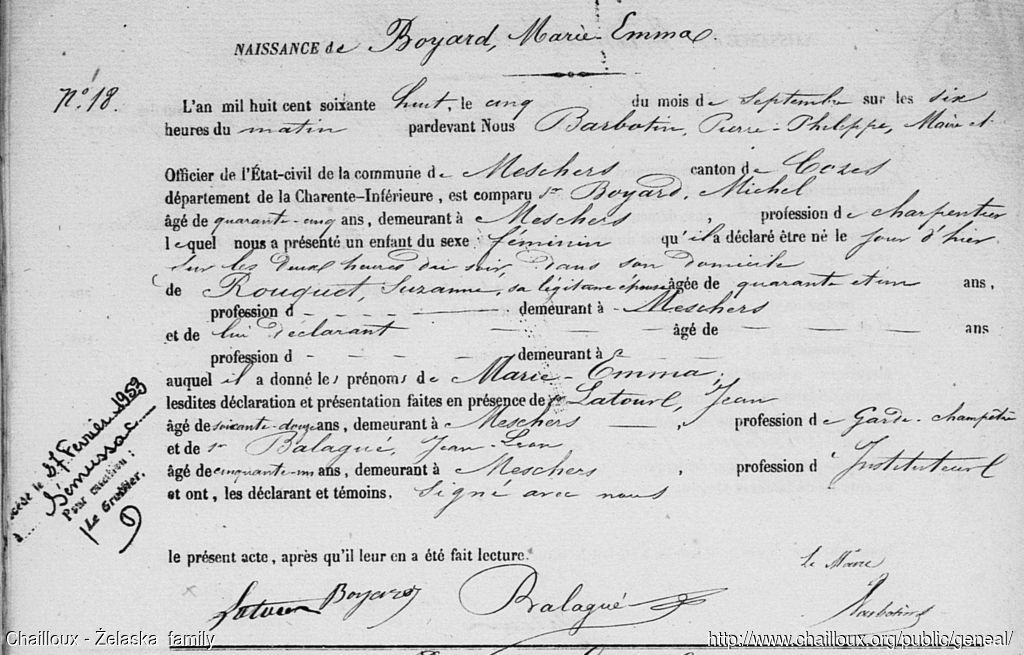 NAISSANCE de Boyard, Marie-Emma
N.º 18.
L'an mil huit cent soixante huit, le cinq du mois de Septembre sur les six
heures du matin pardevant Nous Barbotin, Pierre-Philippe, Maire et
Officier de l'État-civil de la commune de Meschers canton de Cozes
département de la Charente-Inférieure, est comparu sr Boyard, Michel
âgé de quarante-cinq ans, demeurant à Meschers, profession de charpentier
lequel nous a présenté un enfant du sexe féminin qu'il a déclaré être né le jour d'hier
sur les deux heures du soir, dans son domicile
de Rouquet, Suzanne, sa légitime épouse âgée de quarante et un ans,
profession d - - - - - demeurant à Meschers
et de lui déclarant - - - âgé de - - - ans
profession d - - - - - demeurant à - - - -
auquel il a donné les prénoms de Marie-Emma;
lesdites déclaration et présentation faites en présence de sr Latour, Jean
âgé de soixante-douze ans, demeurant à Meschers —, profession de Garde-champêtre
et de sr Balagué, Jean-Léon
âgé de cinquante-un ans, demeurant à Meschers, profession d'Instituteur
et ont, les déclarant et témoins, signé avec nous
le présent acte, après qu'il leur en a été fait lecture.
Décédé le 27 Février 1959
à Gémussac
Pour mention:
Le Greffier.
Le Maire
Latour Boyard Balagué Barbotin
Chailloux - Želaska family
http://www.chailloux.org/public/geneal/